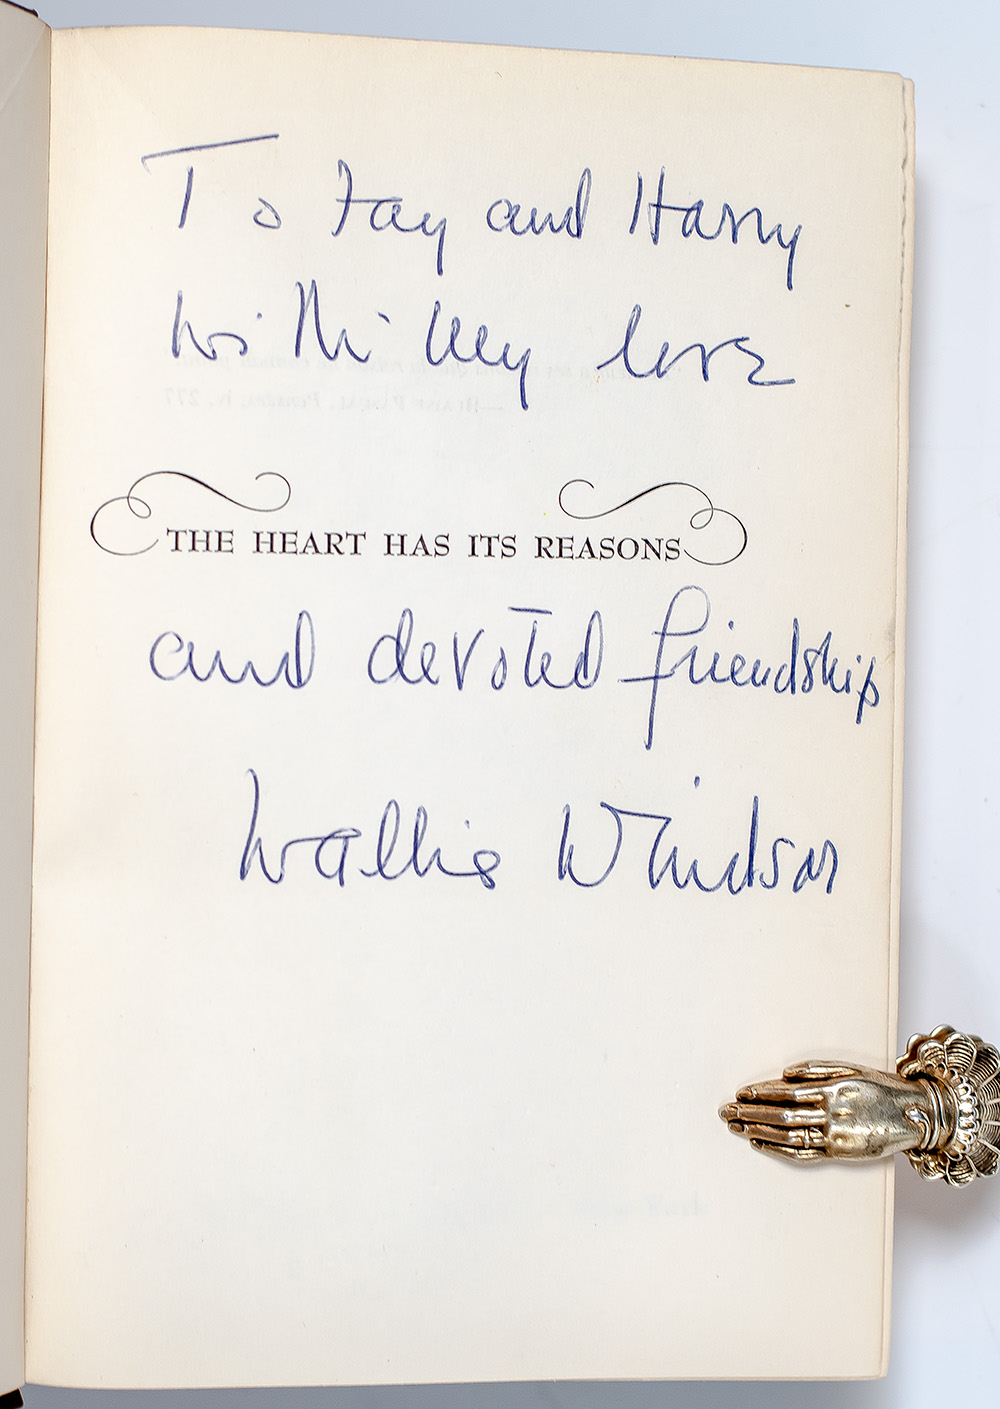 To Fay and Harry
with my love
THE HEART HAS ITS REASONS
and devoted friendship
Wallis Windsor